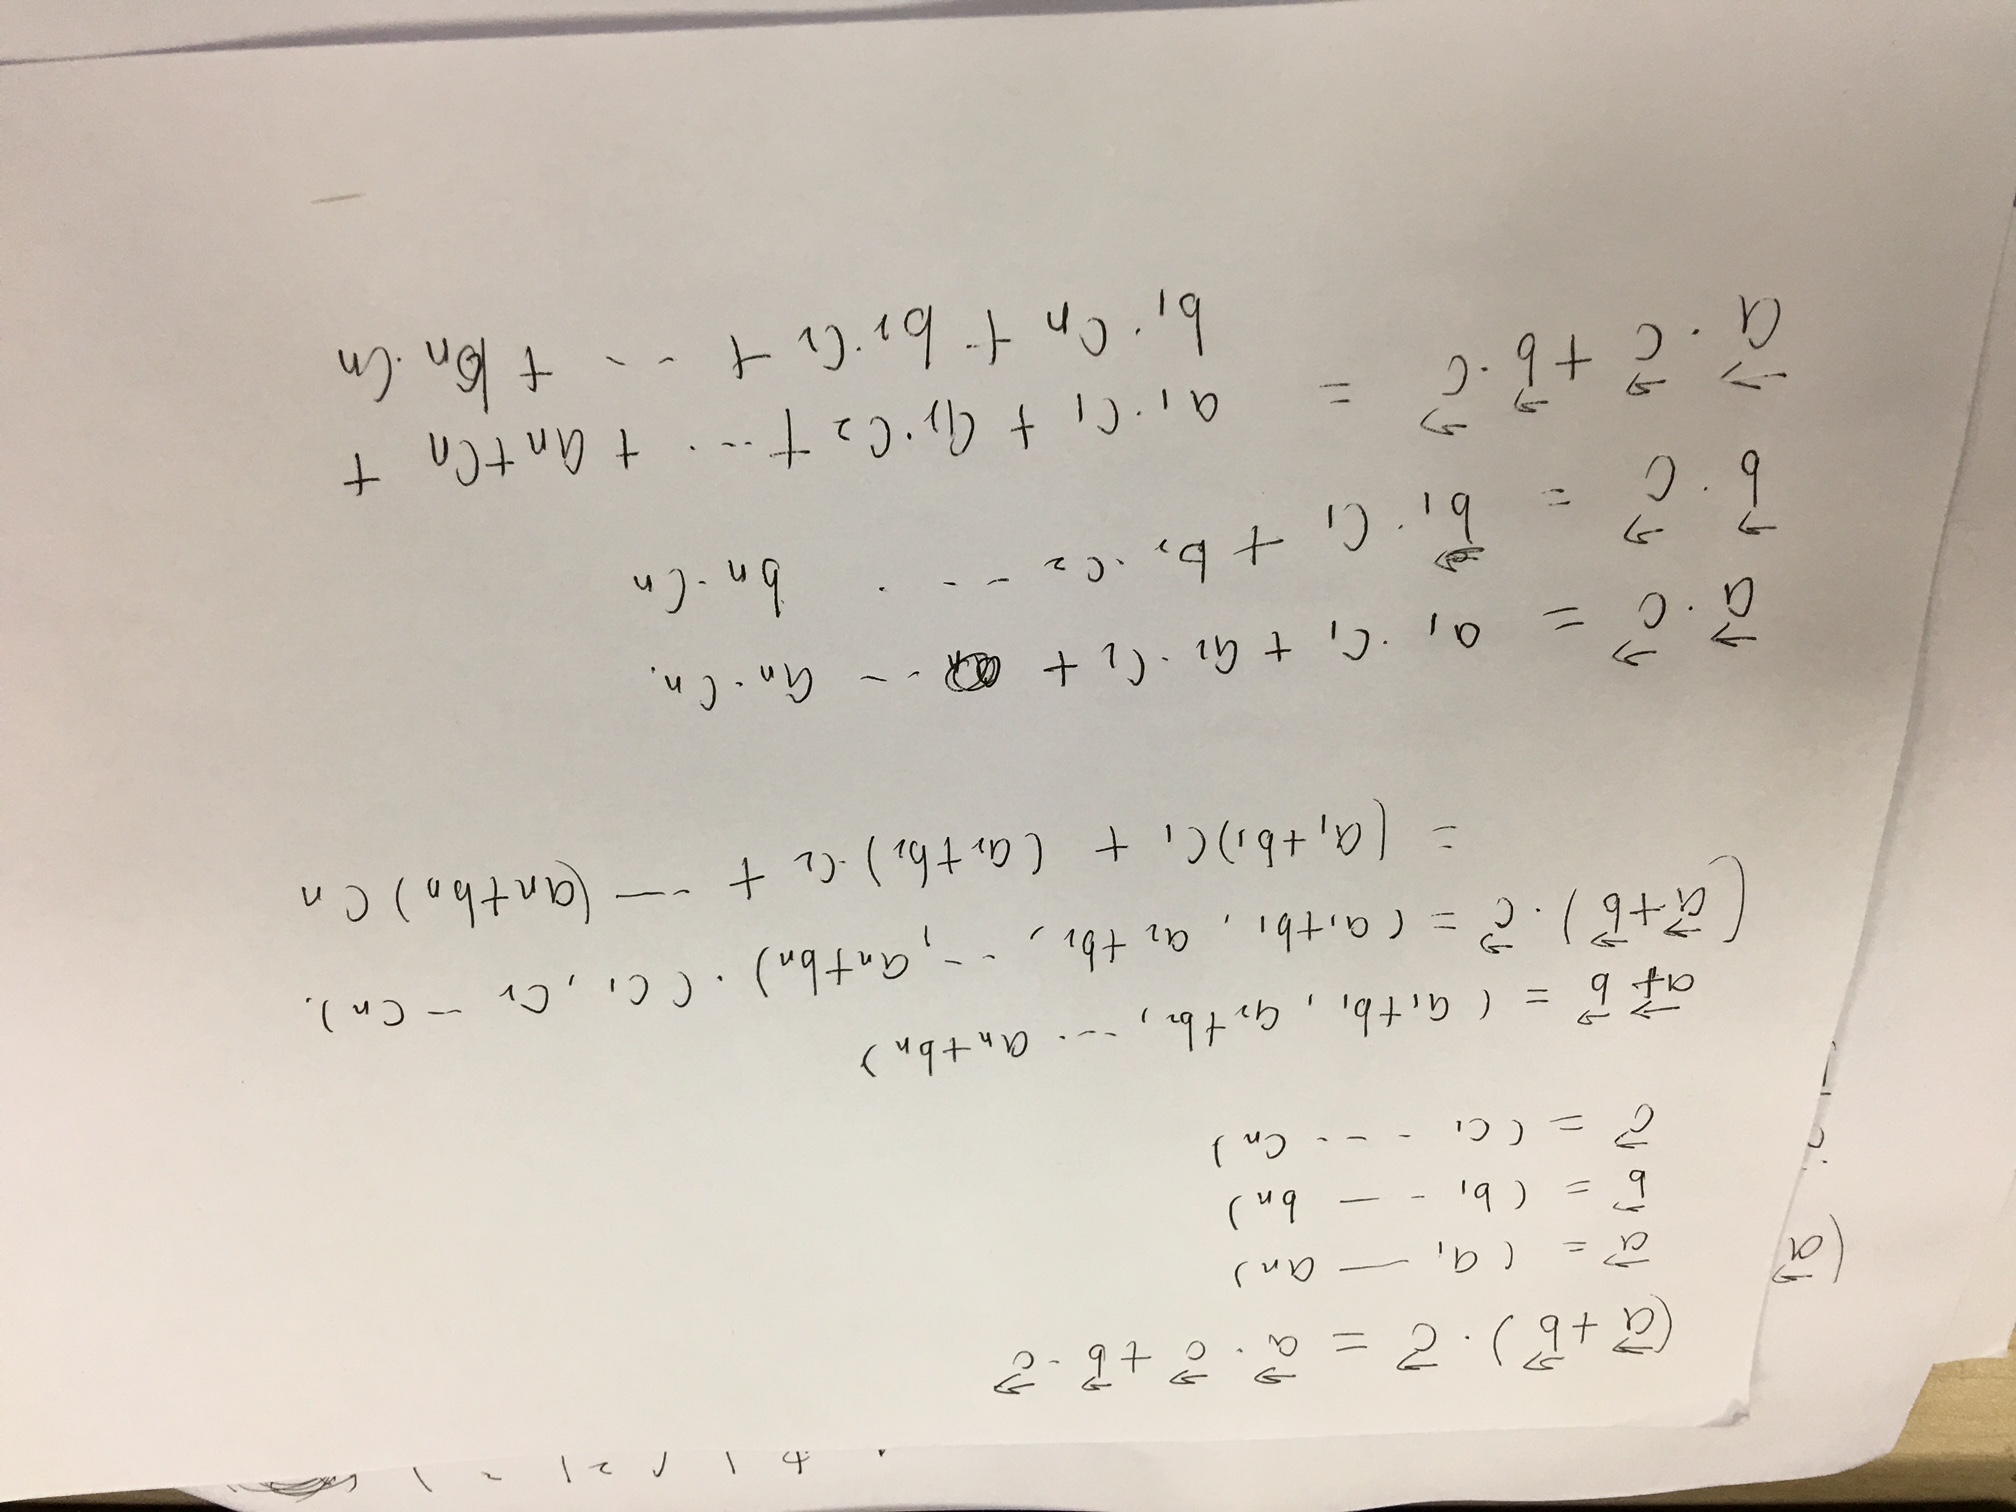 (a⃗ + b⃗) · c⃗ = a⃗ · c⃗ + b⃗ · c⃗
a⃗ = (a₁ — aₙ)
b⃗ = (b₁ - — bₙ)
c⃗ = (c₁ - -- cₙ)
a⃗+b⃗ = (a₁+b₁, a₂+b₂, --· aₙ+bₙ)
(a⃗+b⃗) · c⃗ = (a₁+b₁, a₂+b₂, --, aₙ+bₙ) · (c₁, c₂ -- cₙ).
= (a₁+b₁)c₁ + (a₂+b₂)·c₂ + -·— (aₙ+bₙ)cₙ
a⃗ · c⃗ = a₁ · c₁ + a₂ · c₂ + ·-- aₙ · cₙ.
b⃗ · c⃗ = b₁ · c₁ + b₂ · c₂ --- · bₙ · cₙ
a⃗ · c⃗ + b⃗ · c⃗ = a₁ · c₁ + a₂ · c₂ + -·· + aₙ+cₙ +
b₁ · cₙ + b₂ · c₂ + -·- + bₙ · cₙ
(a⃗